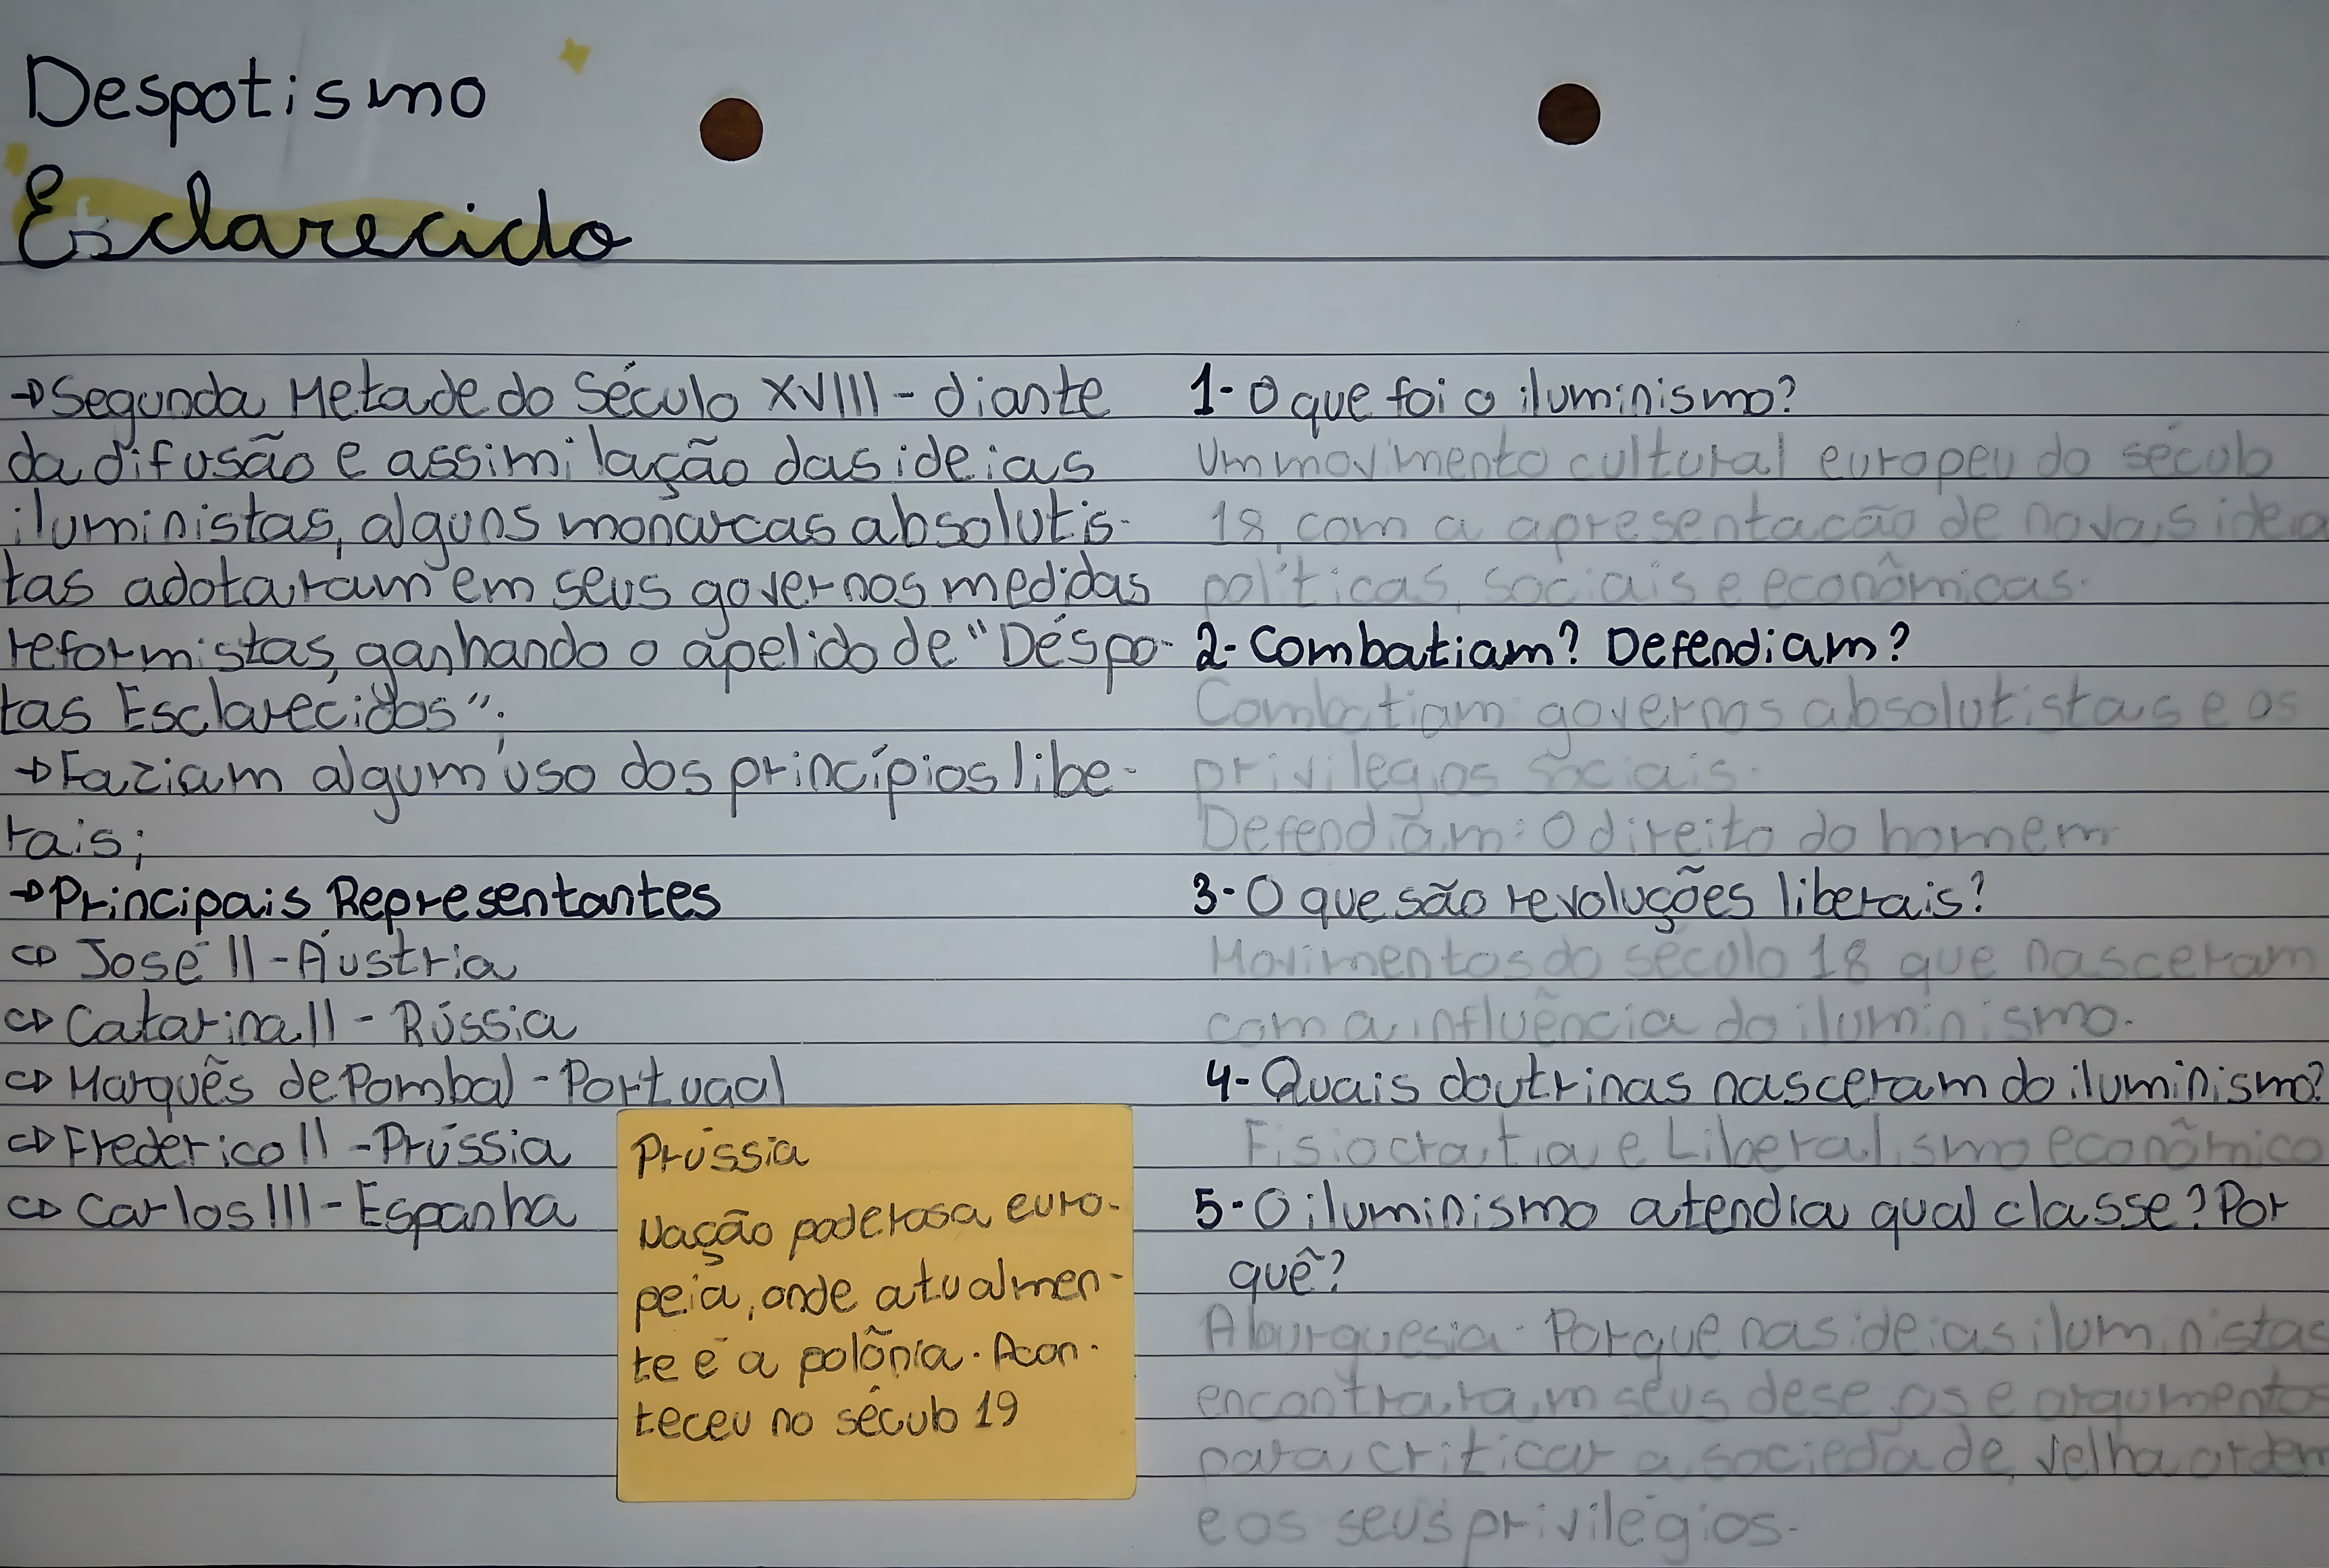 Despotismo
Esclarecido
→Segunda Metade do Século XVIII - diante
da difusão e assimilação das ideias
iluministas, alguns monarcas absolutis-
tas adotaram em seus governos medidas
reformistas, ganhando o apelido de "Déspo-
tas Esclarecidos";
→Faziam algum uso dos princípios libe-
rais;
→Principais Representantes
⇨ José II - Áustria
⇨ Catarina II - Rússia
⇨ Marquês de Pombal - Portugal
⇨ Frederico II - Prússia
⇨ Carlos III - Espanha
Prússia
Nação poderosa euro-
peia, onde atualmen-
te é a polônia. Acon-
teceu no século 19
1- O que foi o iluminismo?
Um movimento cultural europeu do século
18, com a apresentacão de novas ideia
políticas, sociais e econômicas.
2- Combatiam? Defendiam?
Combatiam governos absolutistas e os
privilegios sociais.
Defendiam: O direito do homem
3- O que são revoluções liberais?
Movimentos do século 18 que nasceram
com a influência do iluminismo.
4- Quais doutrinas nasceram do iluminismo?
Fisiocratia e Liberalismo econômico
5- O iluminismo atendia qual classe? Por
quê?
A burguesia. Porque nas ideias iluministas
encontraram seus desejos e argumentos
para criticar a sociedade, velha ordem
e os seus privilégios.